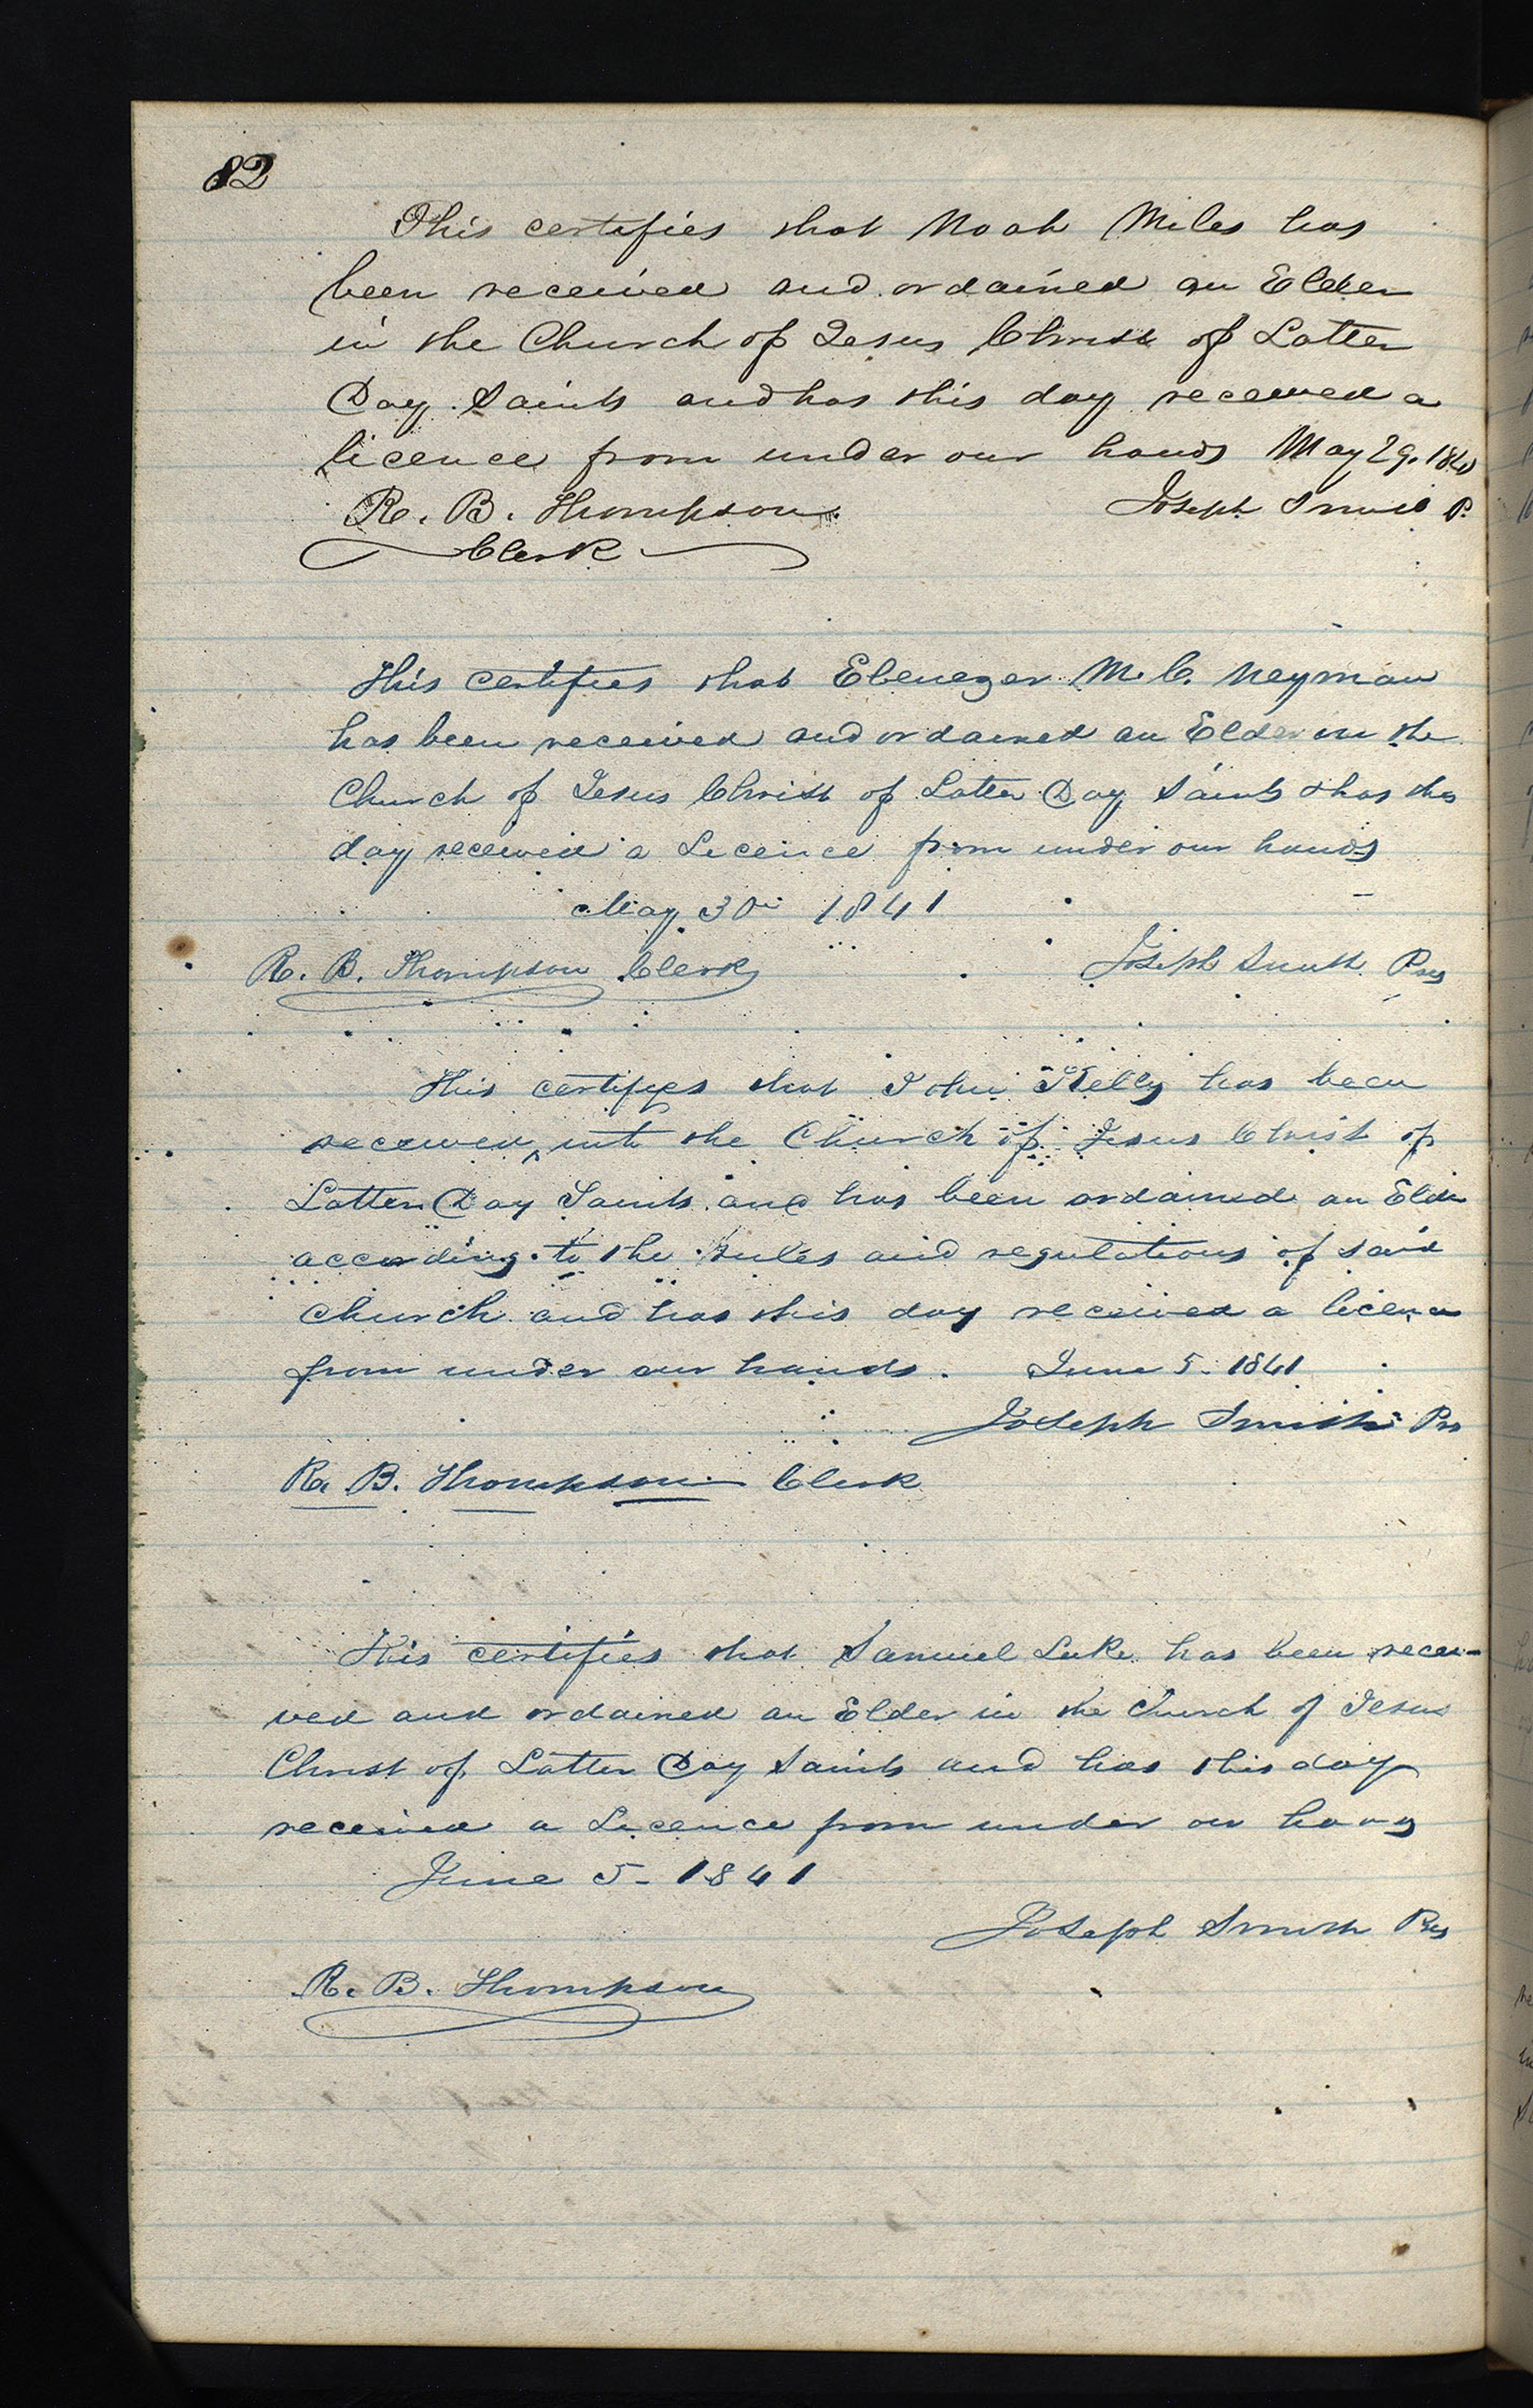 82
This certifies that Noah Miles has
been received and ordained an Elder
in the Church of Jesus Christ of Latter
Day Saints and has this day received a
licence from under our hands May 29. 1841
R. B. Thompson Joseph Smith P.
Clerk
This certifies that Ebenezer M. C. Neyman
has been received and ordained an Elder in the
Church of Jesus Christ of Latter Day Saints & has this
day received a Licence from under our hands
May 30th 1841
R. B. Thompson Clerk Joseph Smith Pres
This certifies that John Kelly has been
received into the Church of Jesus Christ of
Latter Day Saints and has been ordained an Elder
according to the rules and regulations of said
church and has this day received a licence
from under our hands. June 5. 1841
Joseph Smith Pres
R. B. Thompson Clerk
This certifies that Samuel Luke has been recei-
ved and ordained an Elder in the Church of Jesus
Christ of Latter Day Saints and has this day
received a Licence from under our hands
June 5- 1841
Joseph Smith Pres
R. B. Thompson